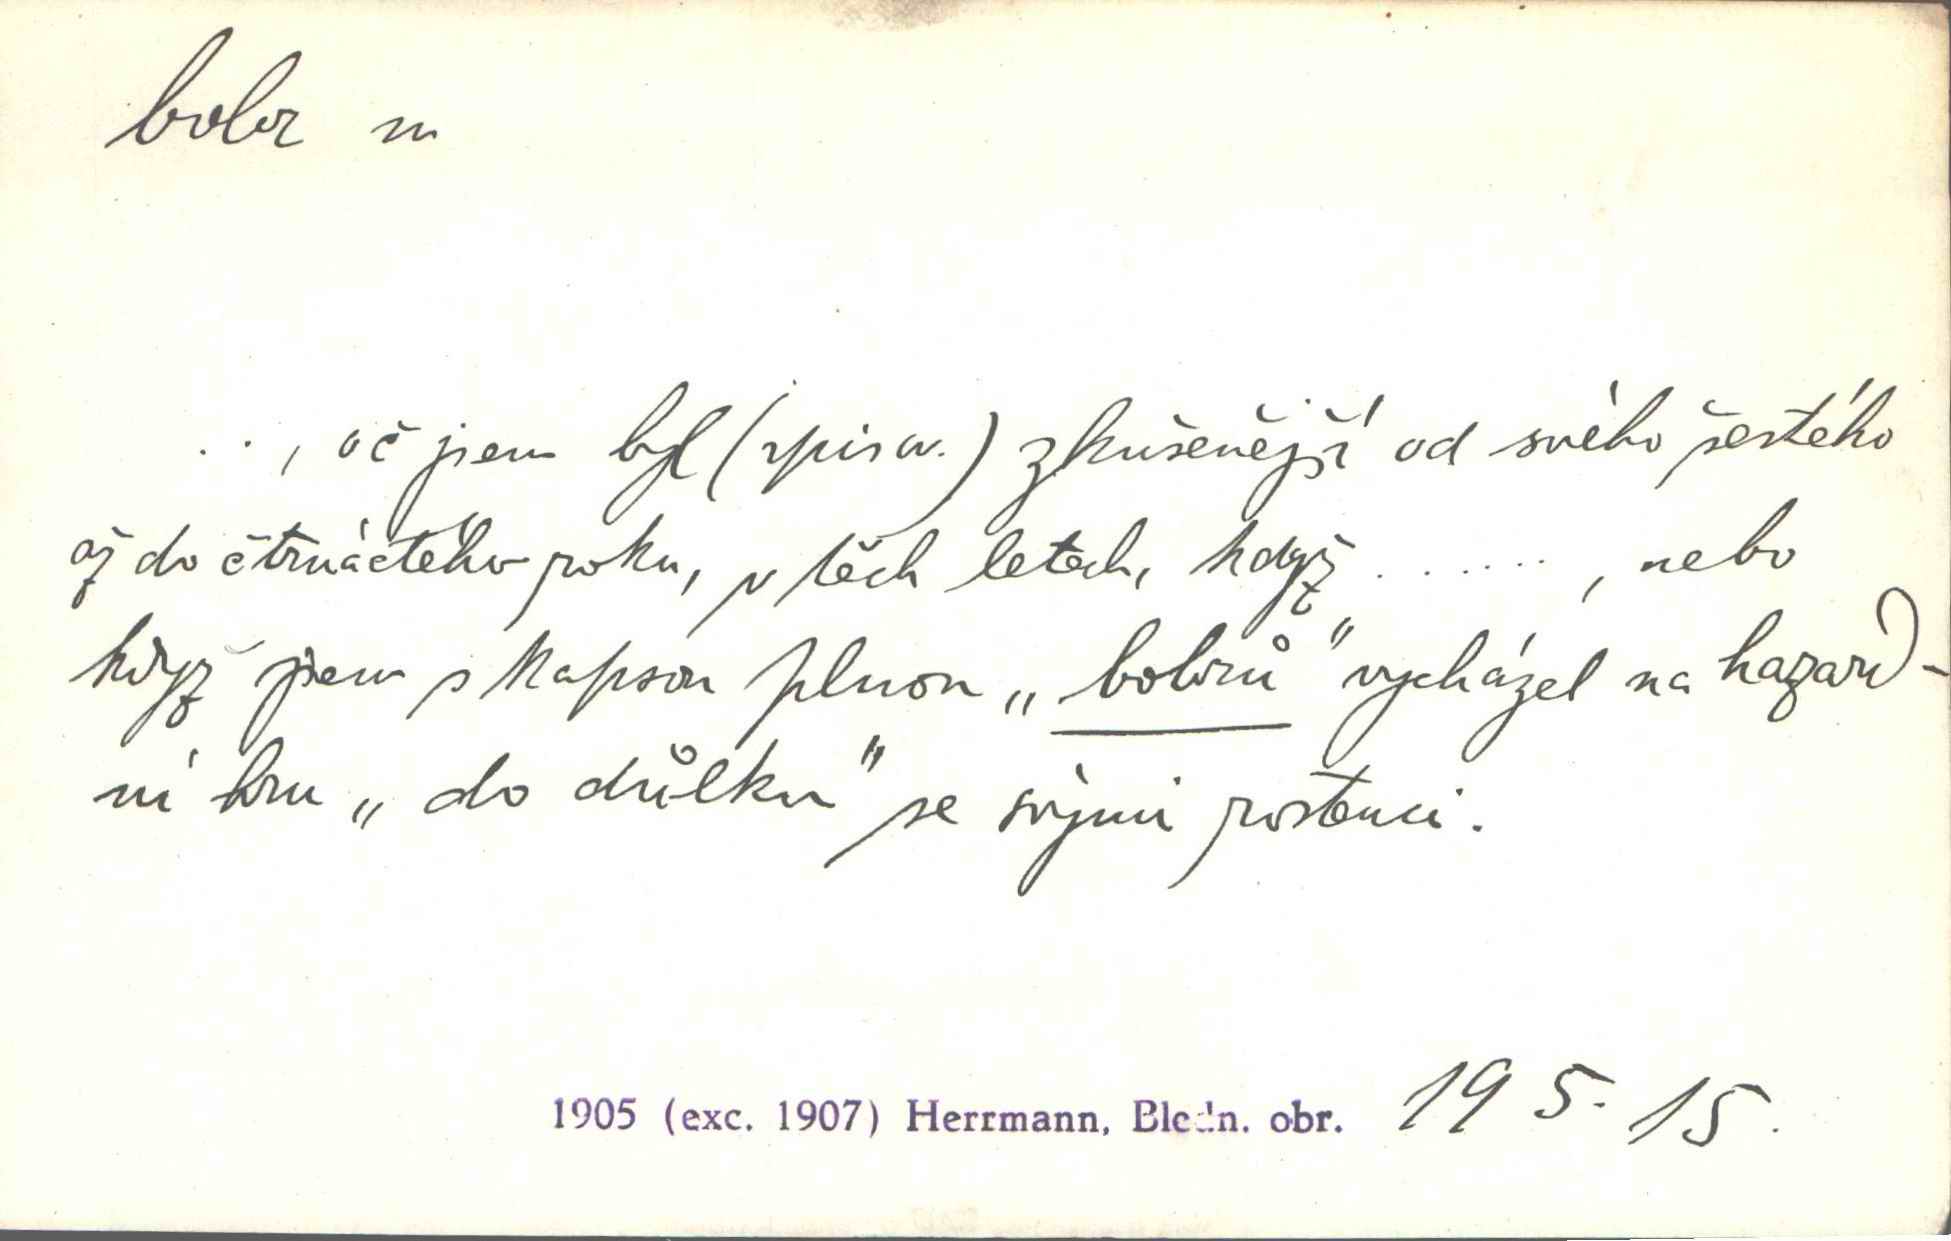 bobr m
. . , oč jsem byl (spisov.) zkušenější od svého šestého
až do čtrnáctého roku, v těch letech, když . . . . . . , nebo
když jsem s kapsou plnou „bobrů" vycházel na hazard-
ní hru „do důlku" se svými vrstevníci.
1905 (exc. 1907) Herrmann, Bledn. obr. 19 5. 15.